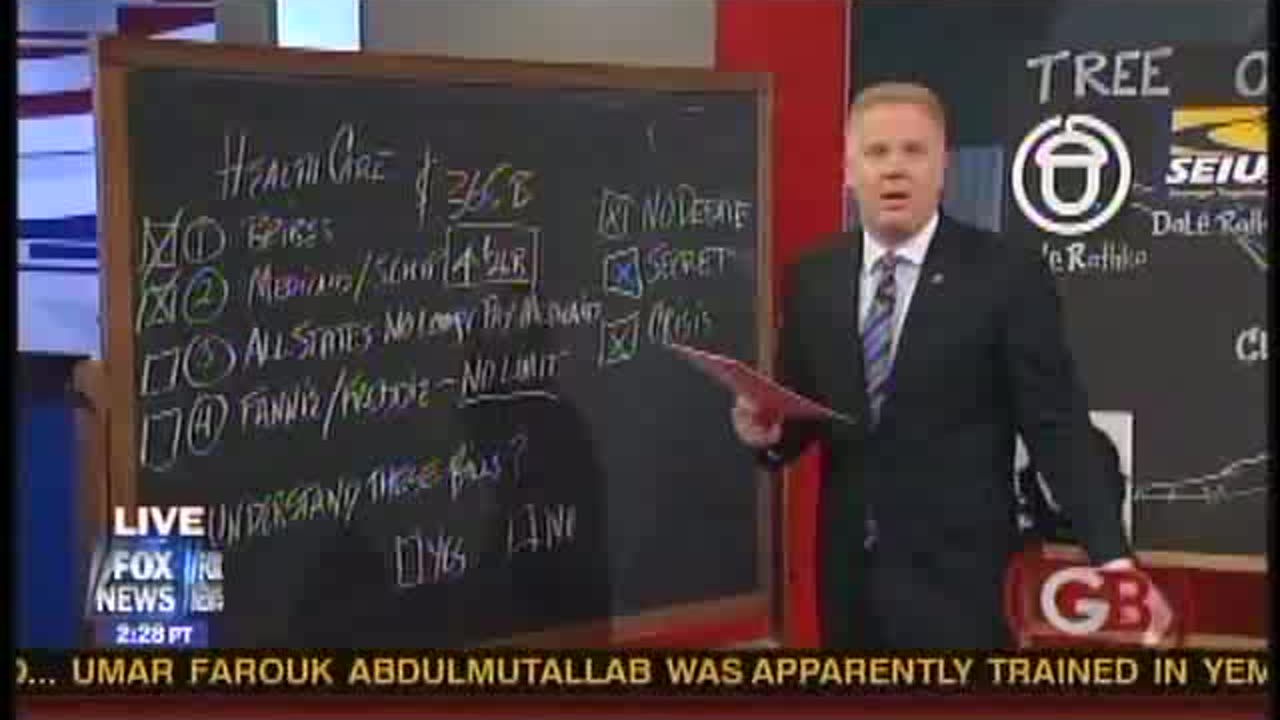 HEALTH CARE $
1 BRIBES
2 MEDICAID/SCHIP
3 ALL STATES NO LONGER PAY MEDICAID
4 FANNIE/FREDDIE - NO LIMIT
UNDERSTAND THESE BILLS?
YES NO
NO DEBATE
SECRET
CRISIS
TREE O
SEIU
DaLe Rath
e Rathke
LIVE
FOX NEWS
FOX NEWS
2:28 PT
GB
... UMAR FAROUK ABDULMUTALLAB WAS APPARENTLY TRAINED IN YEM